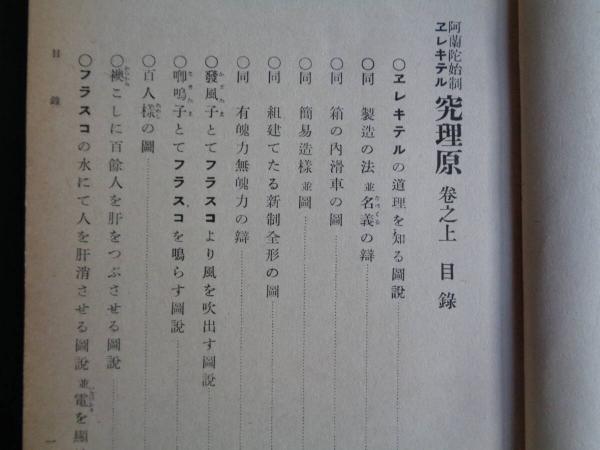 阿蘭陀始制
ヱレキテル 究理原 卷之上 目錄
〇ヱレキテルの道理を知る圖說
〇同 製造の法並名義の辯
〇同 箱の內滑車の圖
〇同 簡易造樣並圖
〇同 組建てたる新制全形の圖
〇同 有魄力無魄力の辯
〇發風子とてフラスコより風を吹出す圖說
〇啣鳴子とてフラスコを鳴らす圖說
〇百人樣の圖
〇襖こしに百餘人を肝をつぶさせる圖說
〇フラスコの水にて人を肝消させる圖說並電を顯
目錄
一